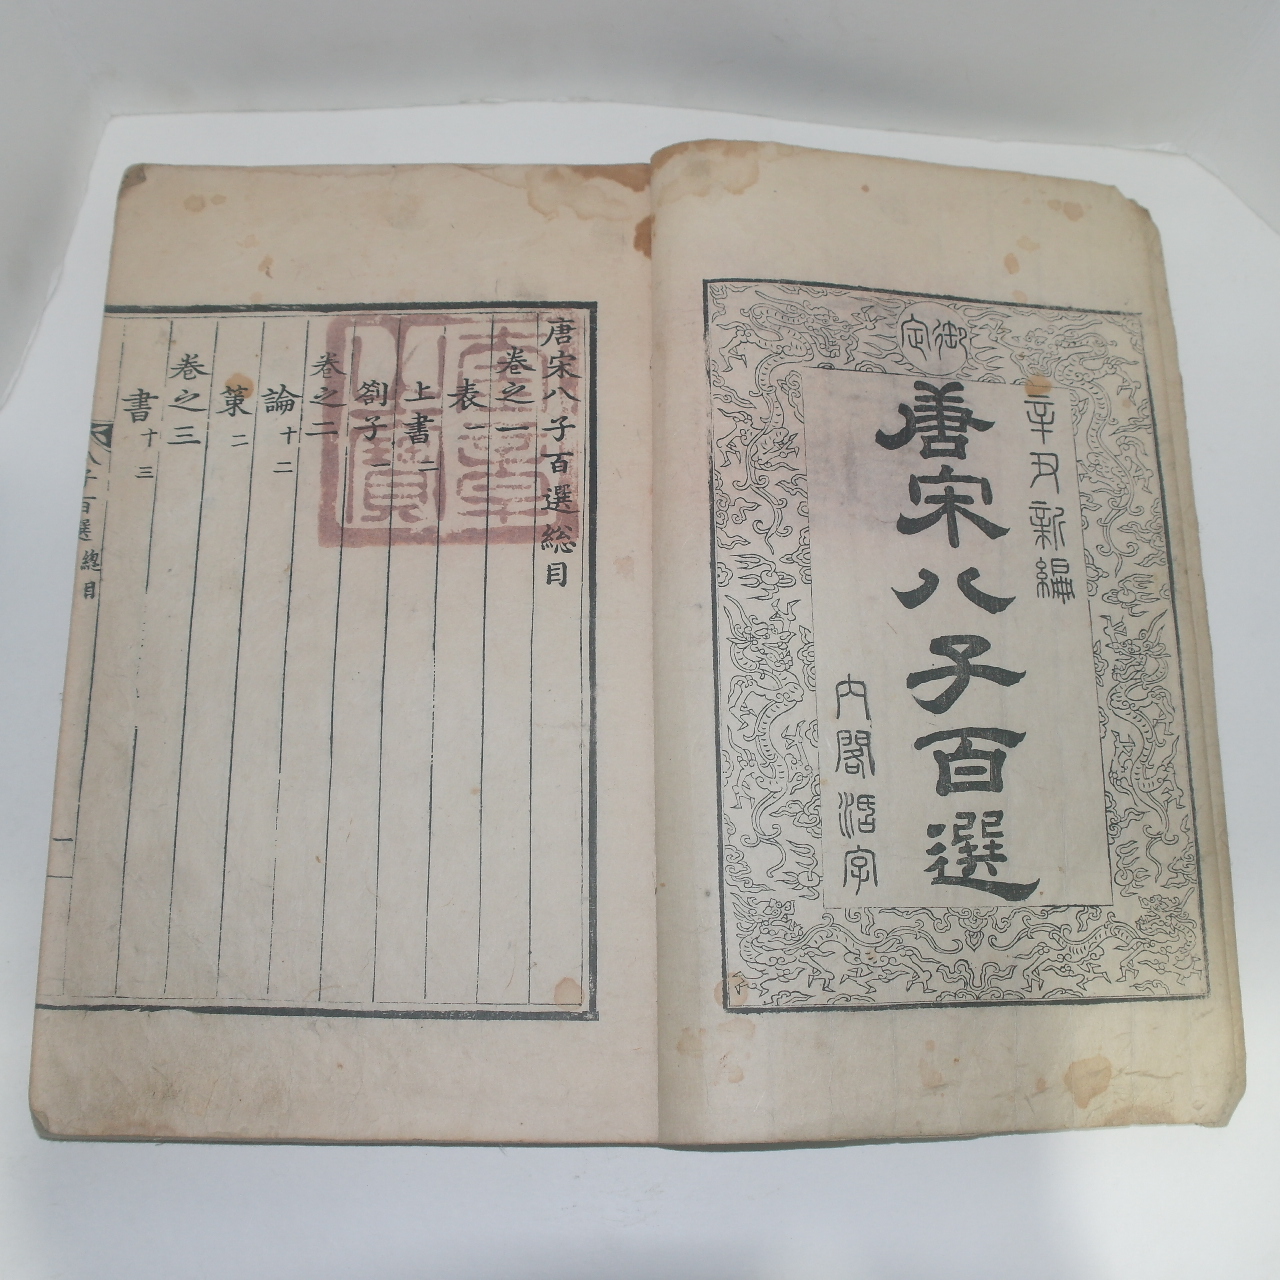 御定
辛丑新編
唐宋八子百選
內閣活字
唐宋八子百選総目
卷之一
表一
上書二
劄子一
卷之二
論十二
策二
卷之三
書十三
八子百選 總目
一